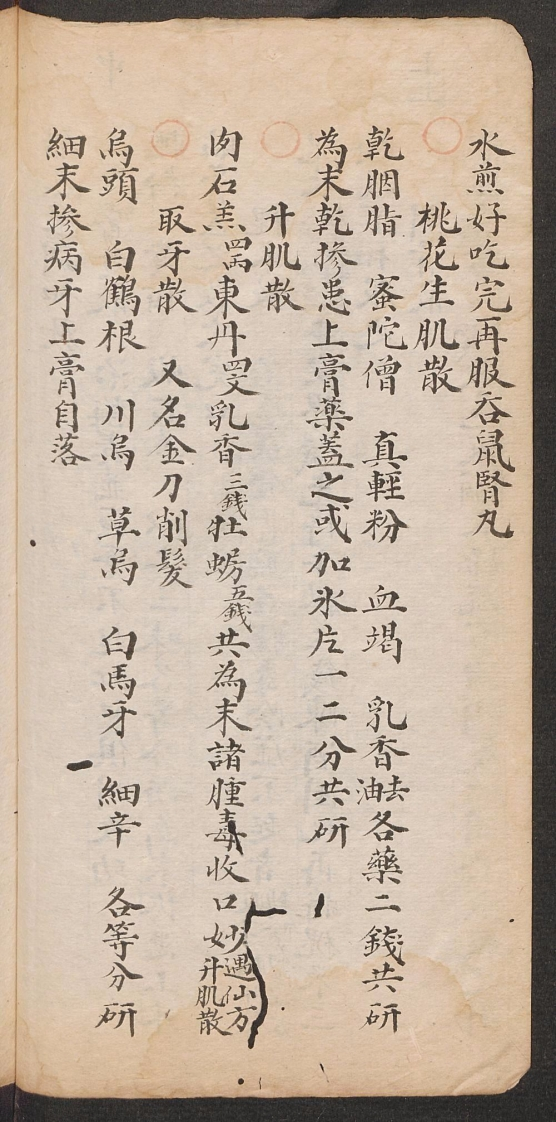 水煎好吃完再服吞鼠腎丸
桃花生肌散
乾胭脂 蜜陀僧 真輕粉 血竭 乳香去油各藥二錢共研
為末乾掺患上膏藥蓋之或加氷片一二分共研
升肌散
肉石羔四両東丹四文乳香三錢牡蜴五錢共為末諸腫毒收口妙遇仙方升肌散
取牙散 又名金刀削髮
烏頭 白鶴根 川烏 草烏 白馬牙 細辛 各等分研
細末掺病牙上膏自落